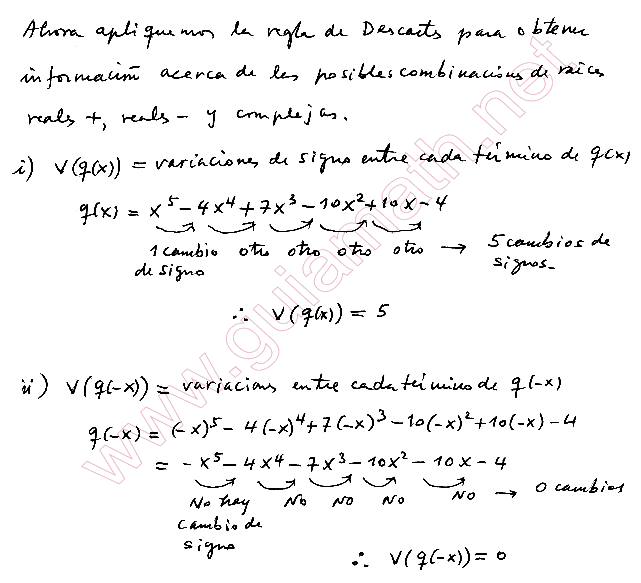 Ahora apliquemos la regla de Descartes para obtener
información acerca de las posibles combinaciones de raíces
reales +, reales - y complejas.
i) V(q(x)) = variaciones de signo entre cada término de q(x)
q(x) = x⁵ - 4x⁴ + 7x³ - 10x² + 10x - 4
1 cambio otro otro otro otro → 5 cambios de
de signo signos.
∴ V(q(x)) = 5
ii) V(q(-x)) = variaciones entre cada término de q(-x)
q(-x) = (-x)⁵ - 4(-x)⁴ + 7(-x)³ - 10(-x)² + 10(-x) - 4
= -x⁵ - 4x⁴ - 7x³ - 10x² - 10x - 4
No hay No No No No → 0 cambios
cambio de
signo
∴ V(q(-x)) = 0
www.guiamath.net